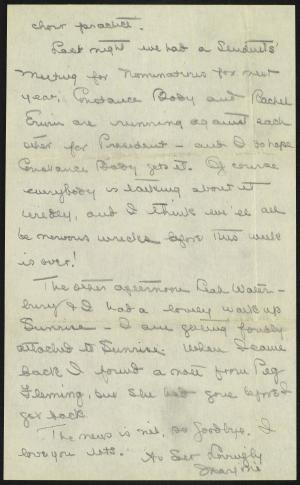 choir practice.
Last night we had a Students'
Meeting for Nominations for next
year. Constance Body and Rachel
Erwin are running against each
other for President – and I do hope
Constance Body gets it. Of course
everybody is talking about it
and I think we'll all
be nervous wrecks before this week
is over!
The other afternoon Leah Water-
bury & I had a lovely walk up
Sunrise – I am getting fondly
attached to Sunrise. When I came
back I found a note from Peg
Fleming, but she had gone before I
got back.
The news is nil, so goodbye. I
love you lots.
As Ever Lovingly
Maxine